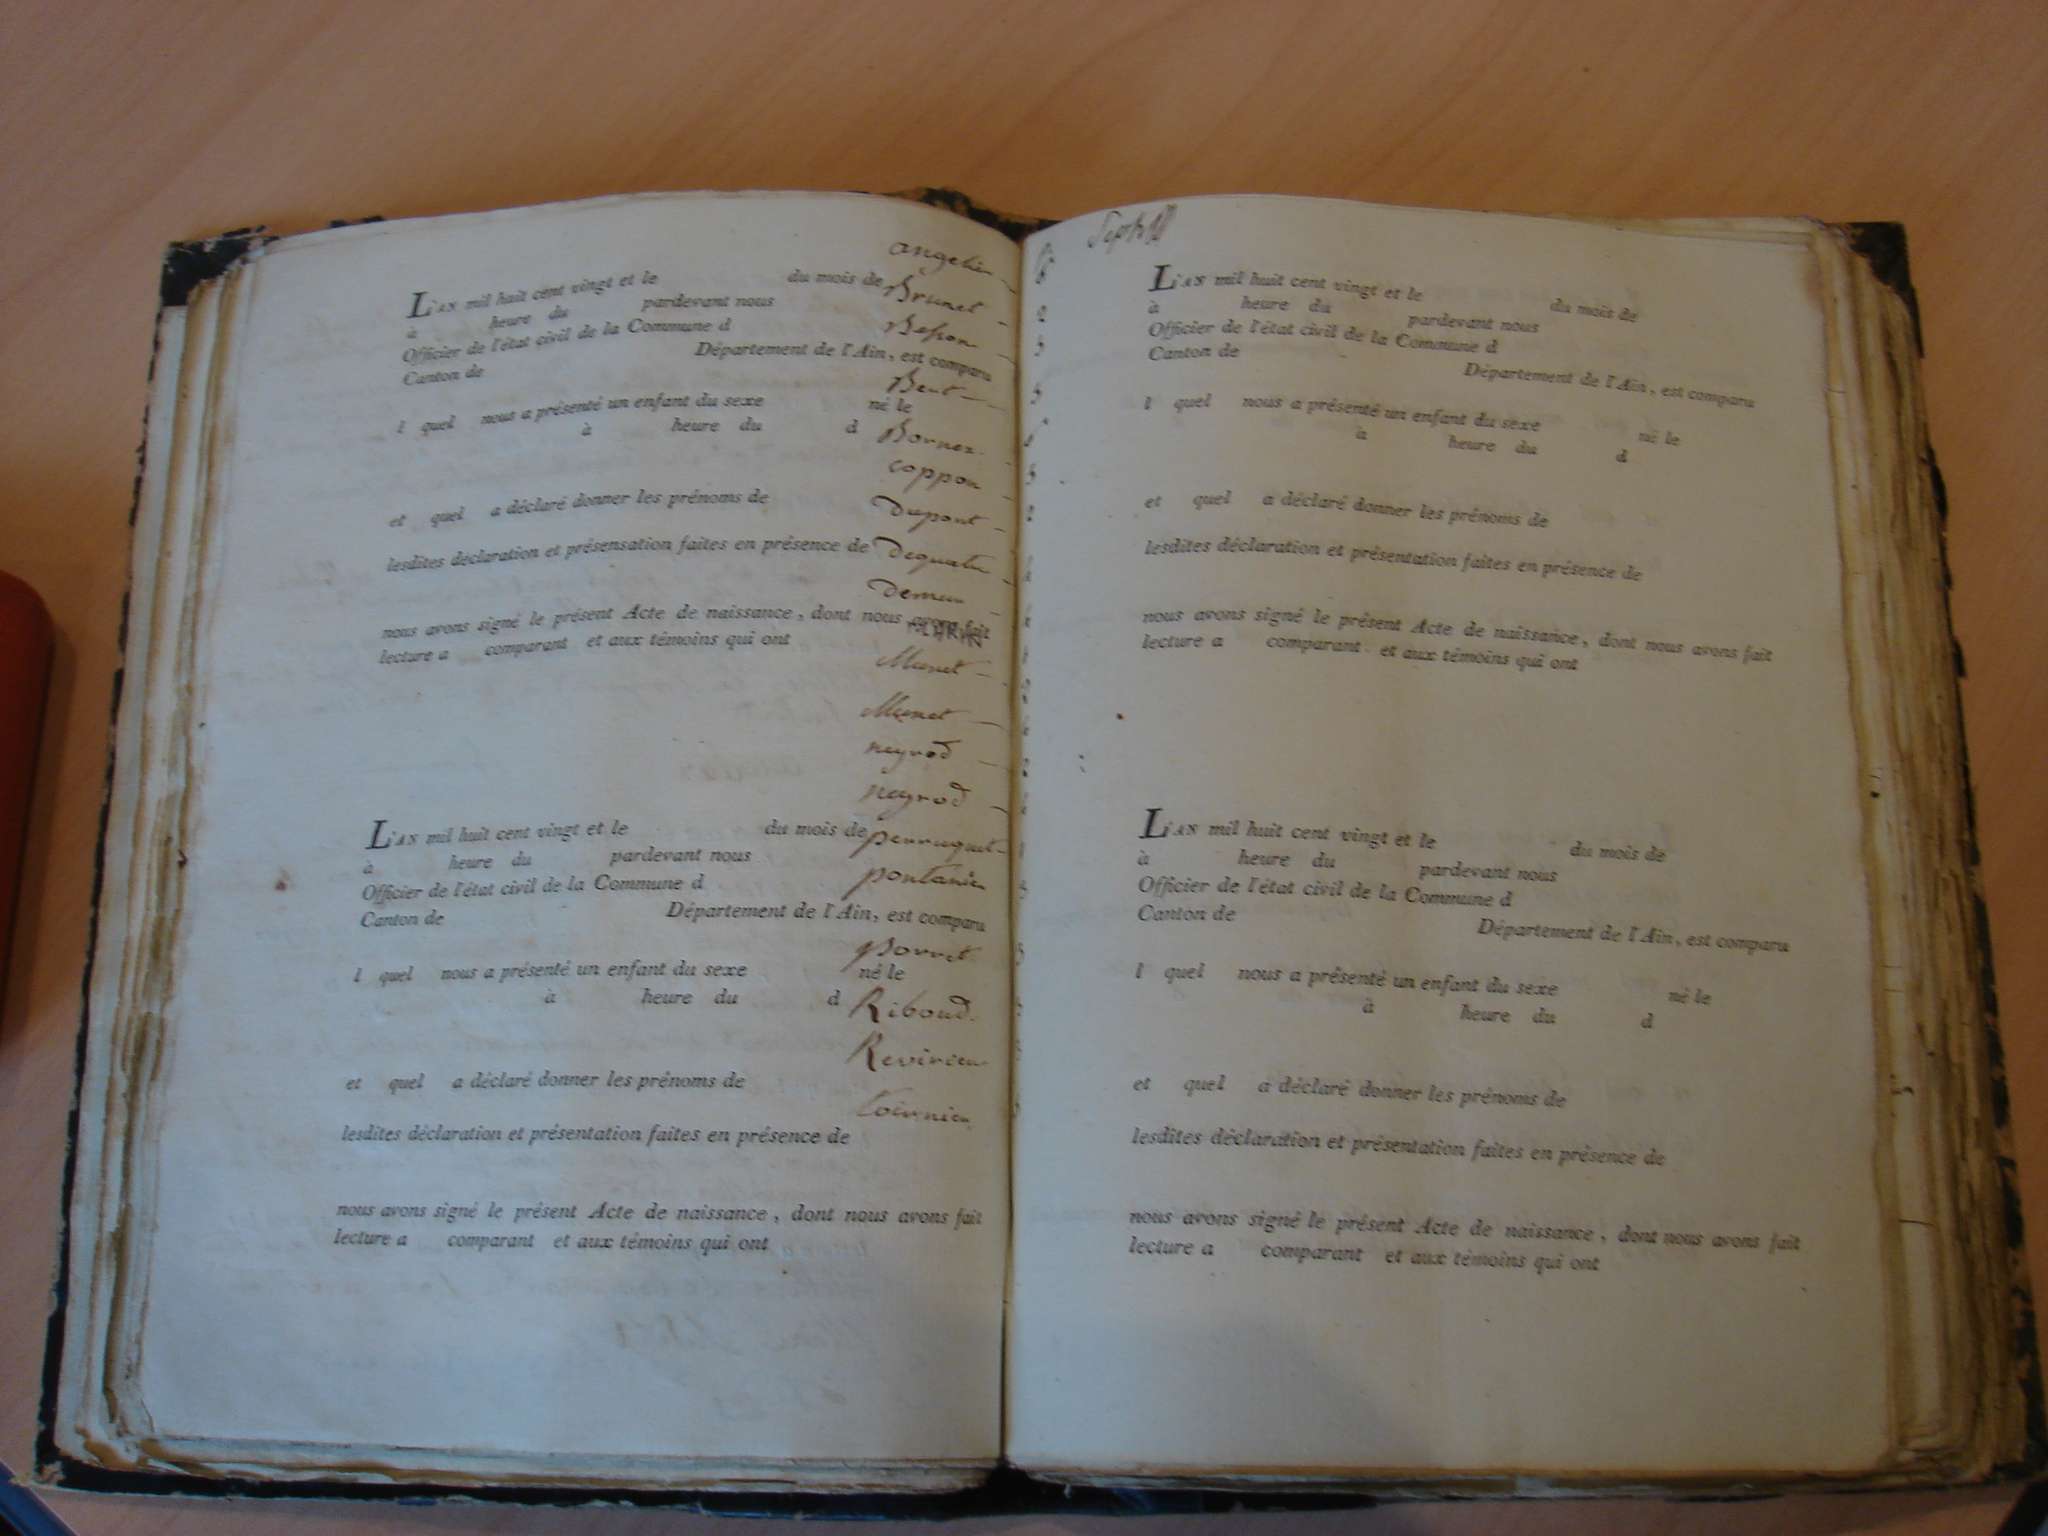 angelin
L'AN mil huit cent vingt et le du mois de
Brunet
à heure du pardevant nous
Officier de l'état civil de la Commune d
Besson
Canton de Département de l'Ain, est comparu
Bert
l quel nous a présenté un enfant du sexe né le
à heure du d
Bornex
coppon
et quel a déclaré donner les prénoms de
Dupont
lesdites déclaration et présensation faites en présence de
Dequatre
nous avons signé le présent Acte de naissance, dont nous avons fait
lecture a comparant et aux témoins qui ont
Munet
Munet
neyrod
neyrod
L'AN mil huit cent vingt et le du mois de
perruquet
à heure du pardevant nous
pontanier
Officier de l'état civil de la Commune d
Canton de Département de l'Ain, est comparu
Porret
l quel nous a présenté un enfant du sexe né le
à heure du d
Riboud
et quel a déclaré donner les prénoms de
lesdites déclaration et présentation faites en présence de
nous avons signé le présent Acte de naissance, dont nous avons fait
lecture a comparant et aux témoins qui ont
L'AN mil huit cent vingt et le du mois de
à heure du pardevant nous
Officier de l'état civil de la Commune d
Canton de Département de l'Ain, est comparu
l quel nous a présenté un enfant du sexe né le
à heure du d
et quel a déclaré donner les prénoms de
lesdites déclaration et présentation faites en présence de
nous avons signé le présent Acte de naissance, dont nous avons fait
lecture a comparant et aux témoins qui ont
L'AN mil huit cent vingt et le du mois de
à heure du pardevant nous
Officier de l'état civil de la Commune d
Canton de Département de l'Ain, est comparu
l quel nous a présenté un enfant du sexe né le
à heure du d
et quel a déclaré donner les prénoms de
lesdites déclaration et présentation faites en présence de
nous avons signé le présent Acte de naissance, dont nous avons fait
lecture a comparant et aux témoins qui ont